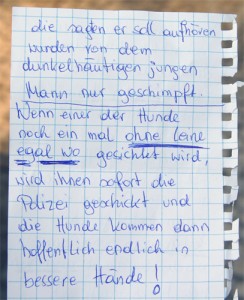 die sagten er soll aufhören
wurden von dem
dunkelhäutigen jungen
Mann nur geschimpft.
Wenn einer der Hunde
noch ein mal ohne Leine
egal wo gesichtet wird,
wird ihnen sofort die
Polizei geschickt und
die Hunde kommen dann
hoffentlich endlich in
bessere Hände!